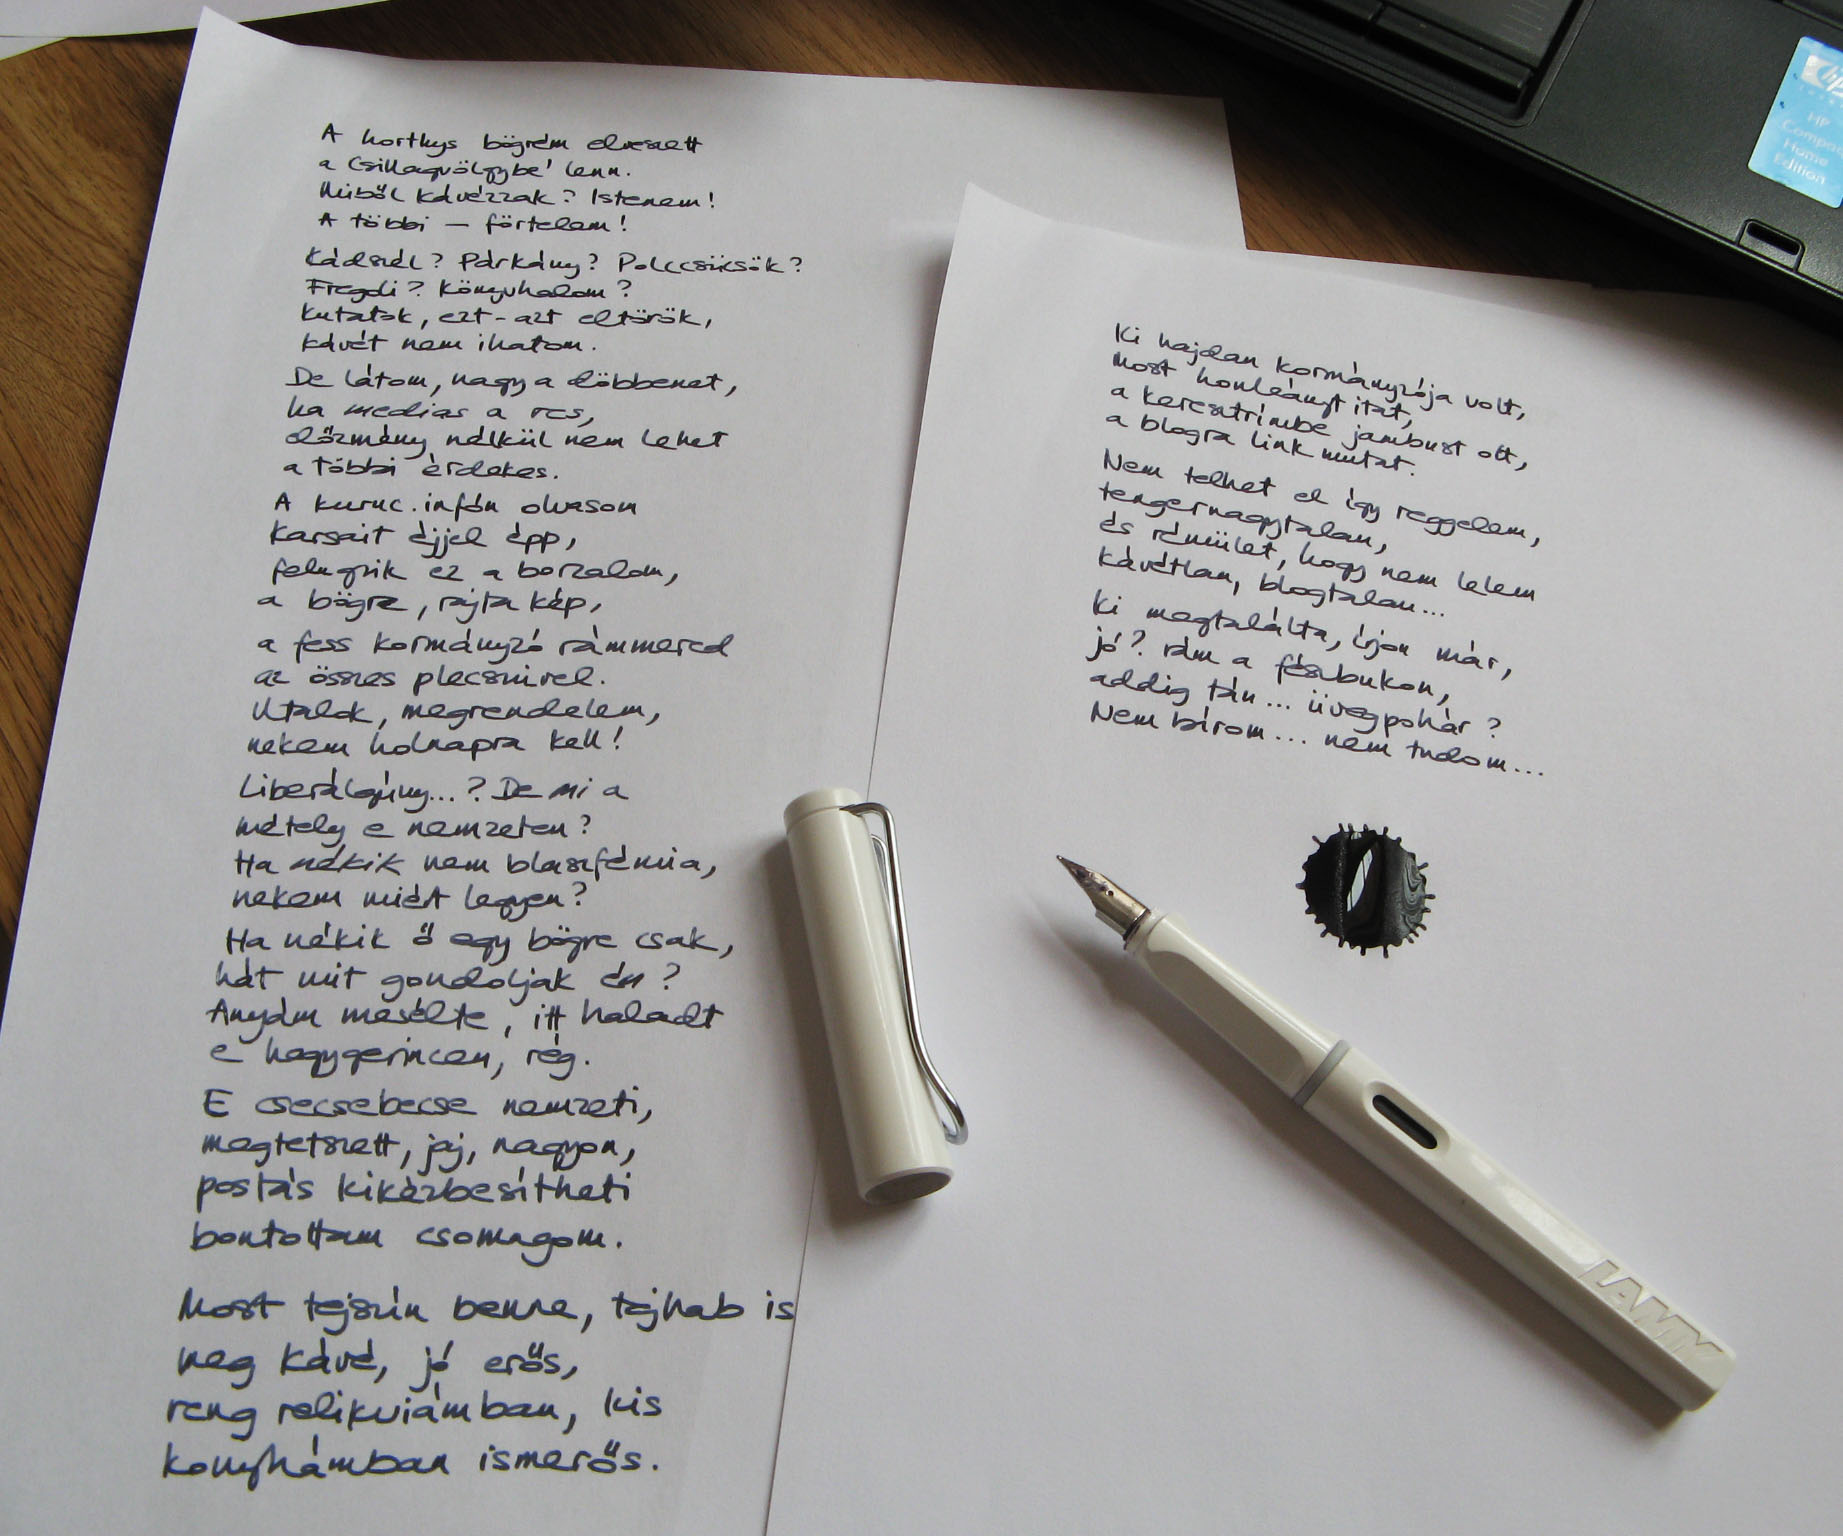 A horthys bögrém elveszett
a Csillagvölgybe' lenn.
Miből kávézzak? Istenem!
A többi – förtelem!
Kádszél? Párkány? Polccsücsök?
Fregoli? Könyvhalom?
Kutatok, ezt-azt eltörök,
kávét nem ihatom.
De látom, nagy a döbbenet,
ha medias a res,
előzmény nélkül nem lehet
a többi érdekes.
A kuruc.infón olvasom
Karsait éjjel épp,
felugrik ez a borzalom,
a bögre, rajta kép,
a fess kormányzó rámmered
az összes plecsnivel.
Utalok, megrendelem,
nekem holnapra kell!
Liberálgúny...? De mi a
métely e nemzeten?
Ha nékik nem blaszfémia,
nekem miért legyen?
Ha nékik ő egy bögre csak,
hát mit gondoljak én?
Anyám mesélte, itt haladt
e hegygerincen, rég.
E csecsebecse nemzeti,
megtetszett, jaj, nagyon,
postás kikézbesítheti
bontottam csomagom.
Most tejszín benne, tejhab is
meg kávé, jó erős,
reng relikviámban, kis
konyhámban ismerős.
Ki hajdan kormányzója volt,
most honleányt itat,
a keresztrímbe jambust olt,
a blogra link mutat.
Nem telhet el így reggelem,
tengernagytalan,
és rémület, hogy nem lelem
kávétlan, blogtalan...
Ki megtalálta, írjon már,
jó? rám a fészbukon,
addig tán... üvegpohár?
Nem bírom... nem tudom...
LAMY
hp
HP
Compaq
Home
Edition